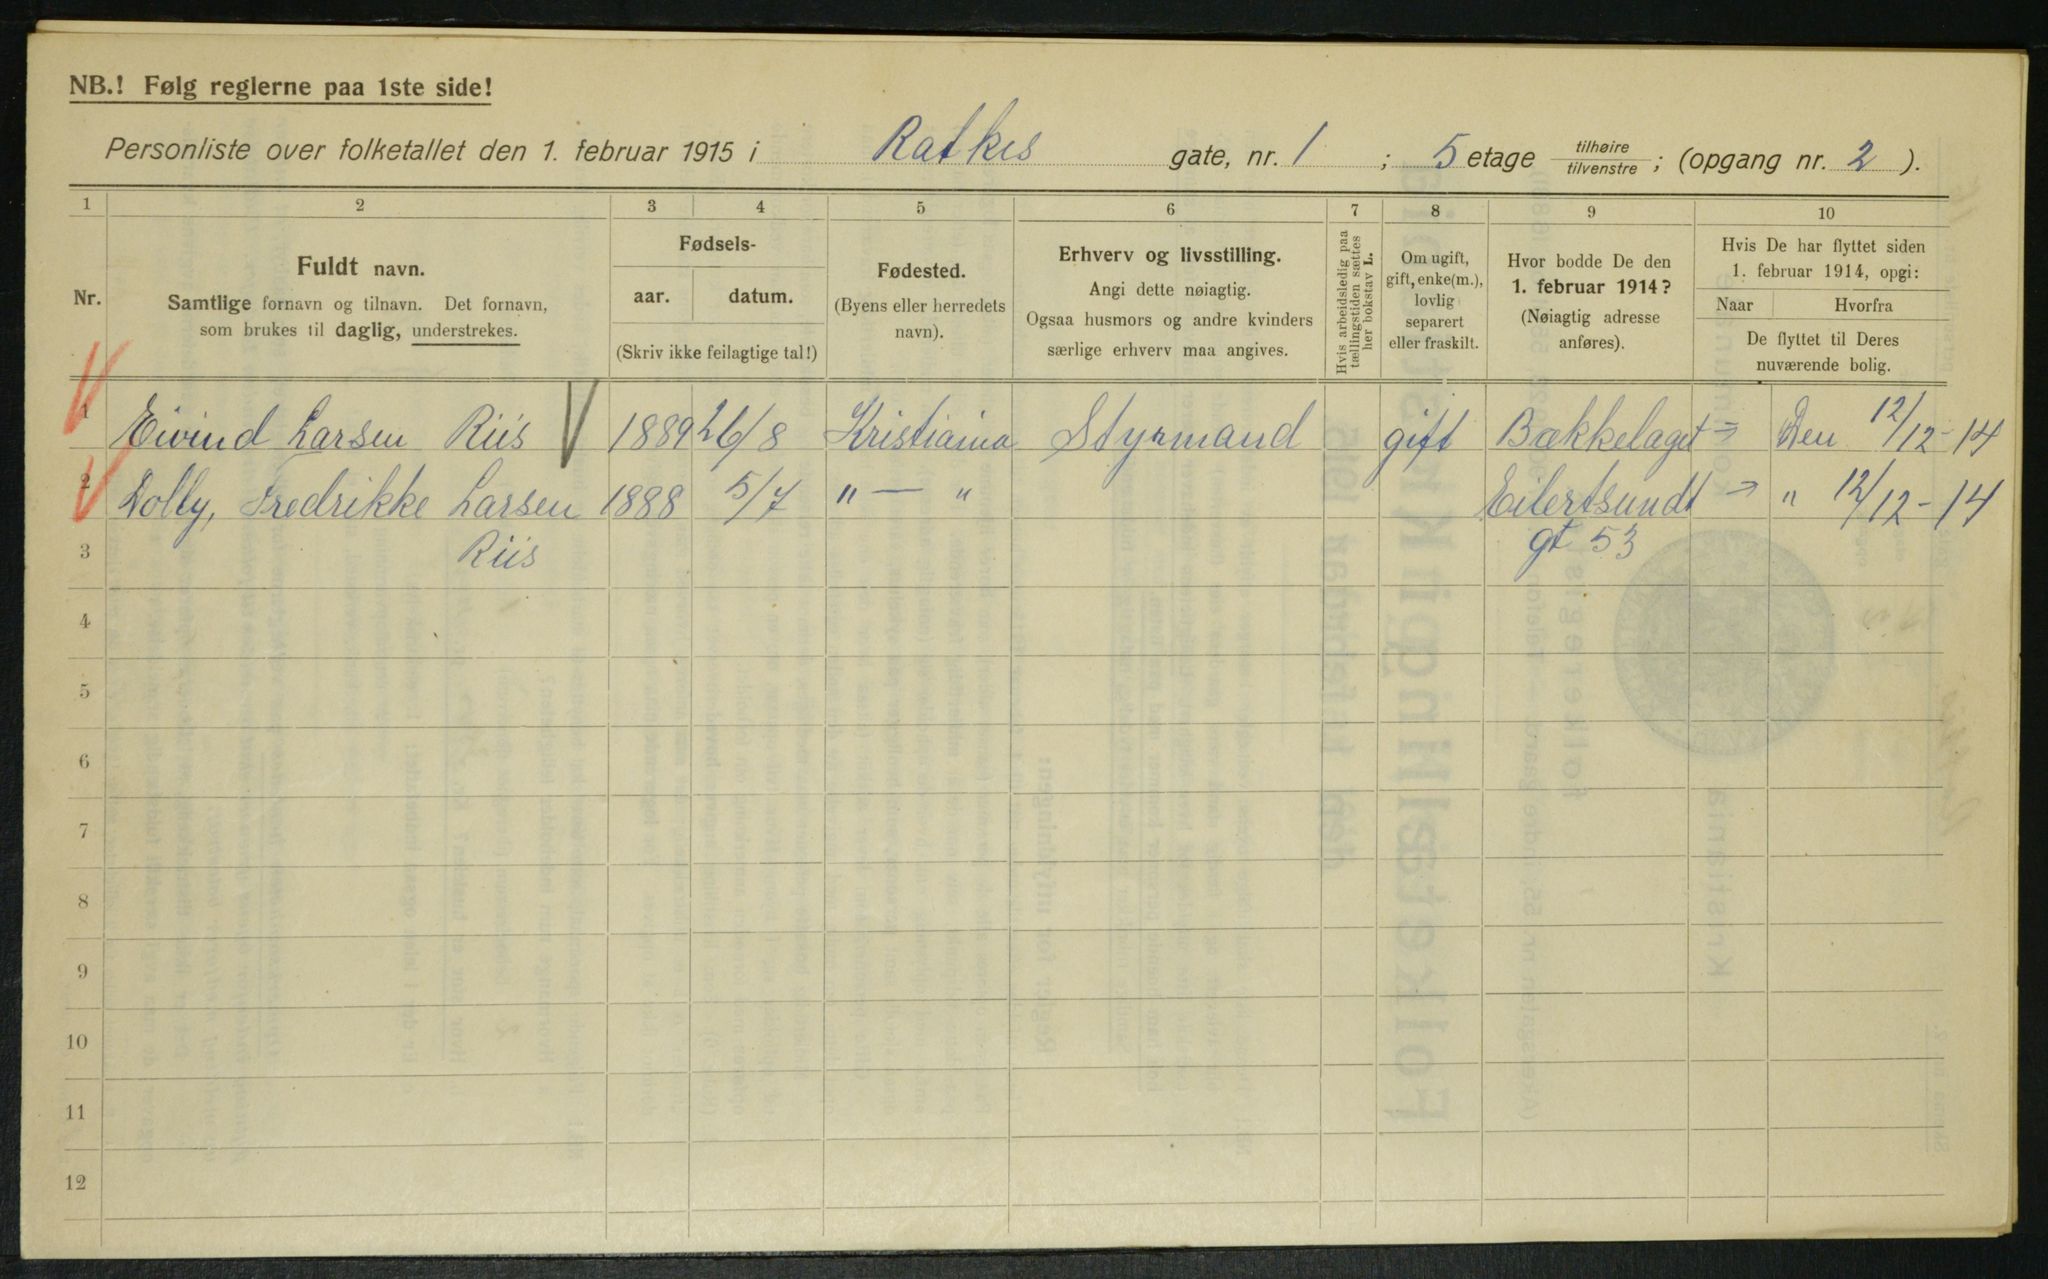 NB.! Følg reglerne paa 1ste side!
Personliste over folketallet den 1. februar 1915 i Ratkes gate, nr. 1 ; 5 etage tilhøire / tilvenstre ; (opgang nr. 2 ).
1 2 3 4 5 6 7 8 9 10
Nr.
Fuldt navn.
Samtlige fornavn og tilnavn. Det fornavn,
som brukes til daglig, understrekes.
Fødsels-
aar. datum.
(Skriv ikke feilagtige tal!)
Fødested.
(Byens eller herredets
navn).
Erhverv og livsstilling.
Angi dette nøiagtig.
Ogsaa husmors og andre kvinders
særlige erhverv maa angives.
Hvis arbeidsledig paa
tællingstiden sættes
her bokstav L.
Om ugift,
gift, enke(m.),
lovlig
separert
eller fraskilt.
Hvor bodde De den
1. februar 1914?
(Nøiagtig adresse
anføres).
Hvis De har flyttet siden
1. februar 1914, opgi:
Naar Hvorfra
De flyttet til Deres
nuværende bolig.
1 Eivind Larsen Riis 1889 26/8 Kristiania Styrmand gift Bækkelaget → Den 12/12-14
2 Dolly, Fredrikke Larsen 1888 5/7 " — " Eilertsundt → " 12/12-14
3 Riis gt 53
4
5
6
7
8
9
10
11
12